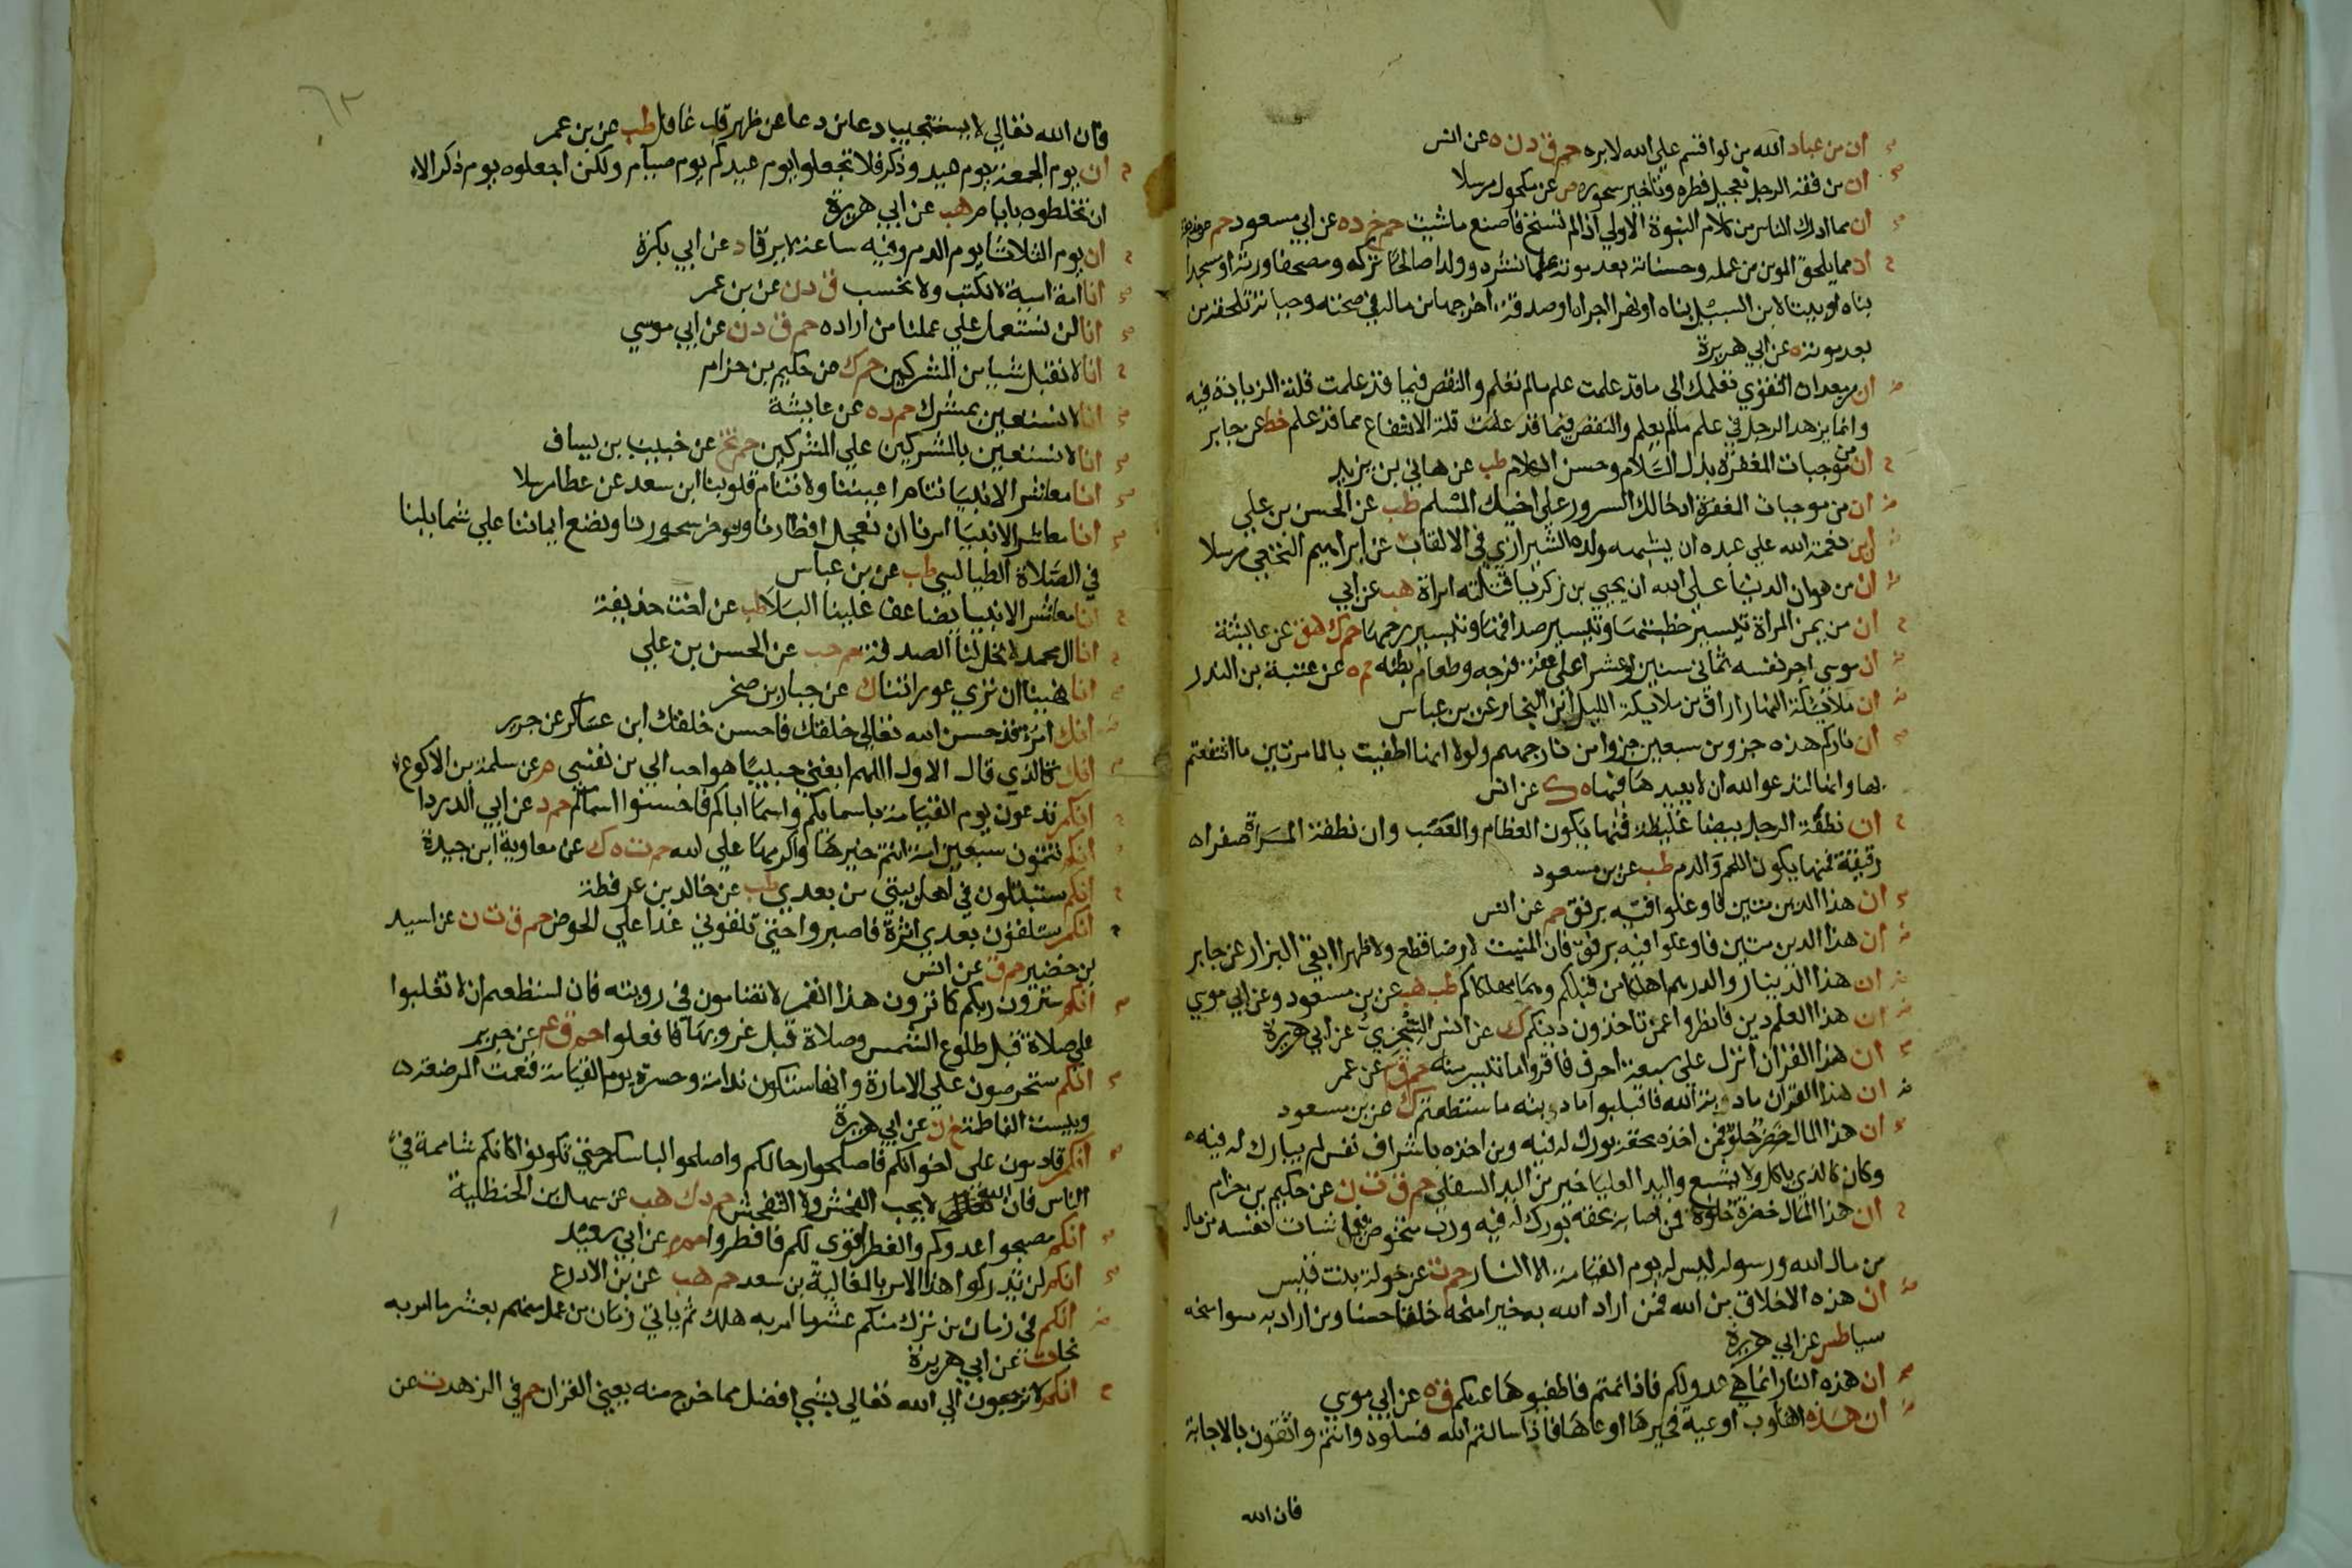 ان من عباد الله من لو اقسم على الله لابره حم ق د ن ه عن انس
ان من فقه الرجل تعجيل فطره وتاخير سحوره ص عن مكحول مرسلا
ان مما ادرك الناس من كلام النبوة الاولي اذا لم تستح فاصنع ما شيت حم خ د ه عن ابي مسعود حم عن حذيفة
ان مما يلحق المومن من عمله وحسناته بعد موته علما نشره وولدا صالحا تركه ومصحفا ورثه او مسجدا
بناه او بيتا لابن السبيل بناه او نهرا اجراه او صدقة اخرجها من ماله في صحته وحياته تلحقه من
بعد موته ه عن ابي هريرة
ان من معادن التقوي تعلمك الى ما قد علمت علم ما لم تعلم والنقص فيما قد علمت قلة الزيادة فيه
وانما يزهد الرجل في علم ما لم يعلم والنقص فيما قد علمت قلة الانتفاع مما قد علم خط عن جابر
ان من موجبات المغفرة بذل السلام وحسن الكلام طب عن هاني بن يزيد
ان من موجبات المغفرة ادخالك السرور على اخيك المسلم طب عن الحسن بن علي
ان من نعمة الله علي عبده ان يشبهه ولده الشيرازي في الالقاب عن ابراهيم النخعي مرسلا
ان من هوان الدنيا على الله ان يحيي بن زكريا قتلته امراة هب عن ابي
ان من يمن المراة تيسير خطبتها وتيسير صداقها وتيسير رحمها حم ك هق عن عايشة
ان موسى اجر نفسه ثماني سنين او عشرا على عفة فرجه وطعام بطنه حم ه عن عتبة بن الندر
ان ملايكة النهار اراف من ملايكة الليل ابن النجار عن بن عباس
ان ناركم هذه جزو من سبعين جزوا من نار جهنم ولولا انها اطفيت بالما مرتين ما انتفعتم
بها وانها لتدعو الله ان لا يعيدها فيها ه ك عن انس
ان نطفة الرجل بيضا غليظة فمنها يكون العظام والعصب وان نطفة المراة صفرا
رقيقة فمنها يكون اللحم والدم طب عن بن مسعود
ان هذا الدين متين فاوغلوا فيه برفق حم عن انس
ان هذا الدين متين فاوغلوا فيه برفق فان المنبت لا ارضا قطع ولا ظهرا ابقي البزار عن جابر
ان هذا الدينار والدرهم اهلكا من قبلكم وهما مهلكاكم طب هب عن بن مسعود وعن ابي موسي
ان هذا العلم دين فانظروا عمن تاخذون دينكم ك عن انس السجزي عن ابي هريرة
ان هذا القران انزل على سبعة احرف فاقروا ما تيسر منه حم ق عن عمر
ان هذا القران مادبة الله فاقبلوا مادبته ما استطعتم ك عن بن مسعود
ان هذا المال خضر حلو فمن اخذه بحقه بورك له فيه ومن اخذه باشراف نفس لم يبارك له فيه
وكان كالذي ياكل ولا يشبع واليد العليا خير من اليد السفلي حم ق ت ن عن حكيم بن حزام
ان هذا المال خضرة حلوة فمن اصابه بحقه بورك له فيه ورب متخوض فيما شات نفسه من مال
من مال الله ورسوله ليس له يوم القيامة الا النار حم ت عن خولة بنت قيس
ان هذه الاخلاق من الله فمن اراد الله به خيرا منحه خلقا حسنا ومن اراد به سوا منحه
سيا طس عن ابي هريرة
ان هذه النار انما هي عدو لكم فاذا نمتم فاطفيوها عنكم ق ه عن ابي موسي
ان هذه القلوب اوعية فخيرها اوعاها فاذا سالتم الله فسلوه وانتم واثقون بالاجابة
فان الله
٦٣
فان الله تعالي لا يستجيب دعا من دعا عن ظهر قلب غافل طب عن بن عمر
ان يوم الجمعة يوم عيد وذكر فلا تجعلوا يوم عيدكم يوم صيام ولكن اجعلوه يوم ذكر الا
ان تخلطوه بايام هب عن ابي هريرة
ان يوم الثلاثا يوم الدم وفيه ساعة لا يرقا د عن ابي بكرة
انا امة امية لا نكتب ولا نحسب ق د ن عن بن عمر
انا لن نستعمل علي عملنا من اراده حم ق د ن عن ابي موسي
انا لا نقبل شيا من المشركين حم ك عن حكيم بن حزام
انا لا نستعين بمشرك حم د ه عن عايشة
انا لا نستعين بالمشركين علي المشركين حم تخ عن خبيب بن يساف
انا معاشر الانبيا تنام اعيننا ولا تنام قلوبنا ابن سعد عن عطا مرسلا
انا معاشر الانبيا امرنا ان نعجل افطارنا ونوخر سحورنا ونضع ايماننا علي شمايلنا
في الصلاة الطيالسي طب عن بن عباس
انا معاشر الانبيا يضاعف علينا البلا طب عن اخت حذيفة
انا ال محمد لا تحل لنا الصدقة حم حب عن الحسن بن علي
انا نهينا ان تري عوراتنا ك عن جبار بن صخر
انك امرو قد حسن الله تعالي خلقك فاحسن خلقك ابن عساكر عن جرير
انك كالذي قال الاول اللهم ابغني حبيبا هو احب الي من نفسي م عن سلمة بن الاكوع
انكم تدعون يوم القيامة باسمايكم واسما اباكم فاحسنوا اسماكم حم د عن ابي الدردا
انكم تتمون سبعين امة انتم خيرها واكرمها علي الله حم ت ه ك عن معاوية ابن حيدة
انكم ستبتلون في اهل بيتي من بعدي طب عن خالد بن عرفطة
انكم ستلقون بعدي اثرة فاصبروا حتي تلقوني غدا علي الحوض حم ق ت ن عن اسيد
بن حضير حم ق عن انس
انكم سترون ربكم كما ترون هذا القمر لا تضامون في رويته فان استطعتم ان لا تغلبوا
علي صلاة قبل طلوع الشمس وصلاة قبل غروبها فافعلوا حم ق ع عن جرير
انكم ستحرصون علي الامارة وانها ستكون ندامة وحسرة يوم القيامة فنعمت المرضعة
وبيست الفاطمة خ ن عن ابي هريرة
انكم قادمون على اخوانكم فاصلحوا رحالكم واصلحوا لباسكم حتي تكونوا كانكم شامة في
الناس فان الله لا يحب الفحش ولا التفحش حم د ك هب عن سهل بن الحنظلية
انكم مصبحوا عدوكم والفطر اقوي لكم فافطروا حم م عن ابي سعيد
انكم لن تدركوا هذا الامر بالمغالبة بن سعد حم هب عن بن الادرع
انكم في زمان من ترك منكم عشر ما امر به هلك ثم ياتي زمان من عمل منهم بعشر ما امر به
نجا ت عن ابي هريرة
انكم لا ترجعون الي الله تعالى بشي افضل مما خرج منه يعني القران حم في الزهد ت عن